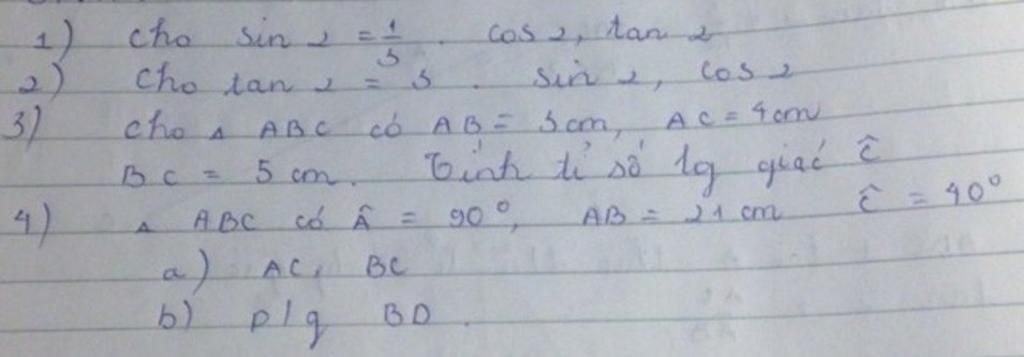 1) cho sin α = 1/3. cos α, tan α
2) Cho tan α = 3. sin α, cos α
3) Cho Δ ABC có AB = 3cm, AC = 4cm
BC = 5 cm. Tính tỉ số lg giác Ĉ
4) Δ ABC có Â = 90°, AB = 21 cm Ĉ = 40°
a) AC, BC
b) p/g BD.